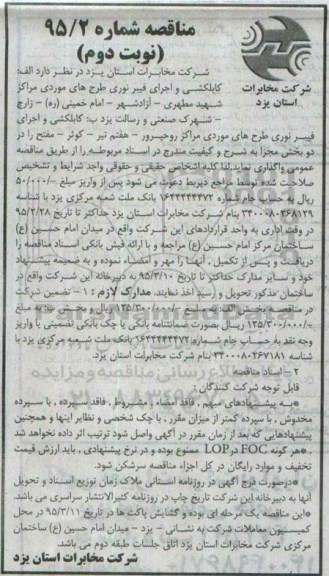 مناقصه شماره ۹۵/۲
(نوبت دوم)
شرکت مخابرات
استان یزد
شرکت مخابرات استان یزد در نظر دارد الف:
کابلکشی و اجرای فیبر نوری طرح های موردی مراکز
شهید مطهری - آزادشهر - امام خمینی (ره) - زارچ
- شهرک صنعتی و رسالت یزد ب: کابلکشی و اجرای
فیبر نوری طرح های موردی مراکز روحپرور - هفتم تیر - کوثر - مفتح را در
دو بخش مجزا به شرح و کیفیت مندرج در اسناد مربوطه را از طریق مناقصه
عمومی واگذاری نماید. لذا کلیه اشخاص حقیقی و حقوقی واجد شرایط و تشخیص
صلاحیت شده توسط مراجع ذیربط دعوت می شود پس از واریز مبلغ ۵۰۰/۰۰۰/-
ریال به حساب جام شماره ۱۶۴۴۴۴۴۴۷۲ بانک ملت شعبه مرکزی یزد با شناسه
۳۴۰۰۰۸۰۳۶۸۱۳۹ بنام شرکت مخابرات استان یزد حداکثر تا تاریخ ۹۵/۲/۲۸
در وقت اداری به واحد قراردادهای این شرکت واقع در میدان امام حسین (ع)
ساختمان مرکز امام حسین (ع) مراجعه و با ارائه فیش بانکی اسناد مناقصه را
دریافت و پس از تکمیل، آنها را مهر و امضاء نموده و به ضمیمه پیشنهاد
خود و سایر مدارک حداکثر تا تاریخ ۹۵/۳/۱۰ به دبیرخانه این شرکت واقع در
ساختمان مذکور تحویل و رسید اخذ نمایند. مدارک لازم: ۱- تضمین شرکت
۱۳۵/۳۰۰/۰۰۰/- ریال بصورت ضمانتنامه بانکی یا چک بانکی تضمینی یا واریز
وجه نقد به حساب جام شماره ۱۶۴۴۴۴۴۴۷۲ بانک ملت شعبه مرکزی یزد با
شناسه ۳۴۰۰۰۸۰۴۶۷۱۸۱ بنام شرکت مخابرات استان یزد.
۲- اسناد مناقصه
قابل توجه شرکت کنندگان:
*به پیشنهادهای مبهم، فاقد امضاء، مشروط، فاقد سپرده، با سپرده
مخدوش، با سپرده کمتر از میزان مقرر، با چک شخصی و نظایر اینها و همچنین
پیشنهادهایی که بعد از زمان مقرر در آگهی واصل شود ترتیب اثر داده نخواهد شد
*هر گونه FOC در LOP ممنوع بوده و در نرخ پیشنهادی، باید ارزش قیمت
تخفیف و موارد رایگان در کل اجزاء مناقصه سرشکن شود.
*درصورت درج آگهی در روزنامه استانی ملاک زمان توزیع اسناد و تحویل
آنها به دبیرخانه این شرکت تاریخ چاپ در روزنامه کثیرالانتشار سراسری می باشد.
*این مناقصه یک مرحله ای بوده و گشایش پاکت ها در تاریخ ۹۵/۳/۱۱ در محل
کمیسیون معاملات شرکت به نشانی - یزد - میدان امام حسین (ع) ساختمان
مرکزی شرکت مخابرات استان یزد اتاق جلسات طبقه دوم می باشد.
شرکت مخابرات استان یزد